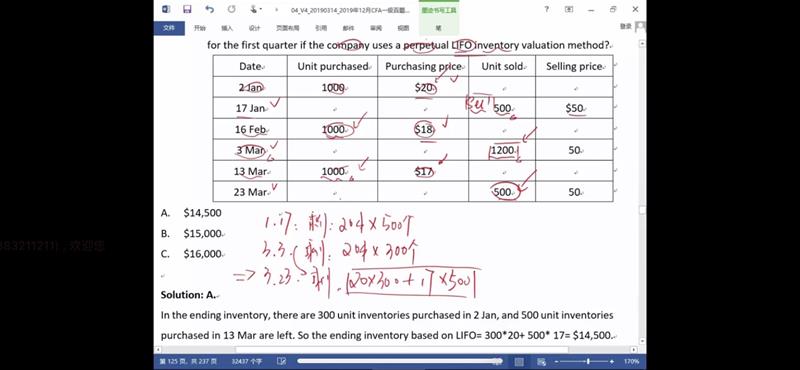 04_V4_20190314_2019年12月CFA一级百题
墨迹书写工具
登录
文件 开始 插入 设计 页面布局 引用 邮件 审阅 视图 笔
for the first quarter if the company uses a perpetual LIFO inventory valuation method?
Date Unit purchased Purchasing price Unit sold Selling price
2 Jan 1000 $20
17 Jan sell 500 $50
16 Feb 1000 $18
3 Mar 1200 50
13 Mar 1000 $17
23 Mar 500 50
A. $14,500
B. $15,000
C. $16,000
1.17: 剩: 20 × 500个
3.3. 剩: 20 × 300个
⇒ 3.23. 剩. 20×300+17×500
383211211)，欢迎您
Solution: A.
In the ending inventory, there are 300 unit inventories purchased in 2 Jan, and 500 unit inventories
purchased in 13 Mar are left. So the ending inventory based on LIFO= 300*20+ 500* 17= $14,500.
第 125 页，共 237 页 32437 个字 170%